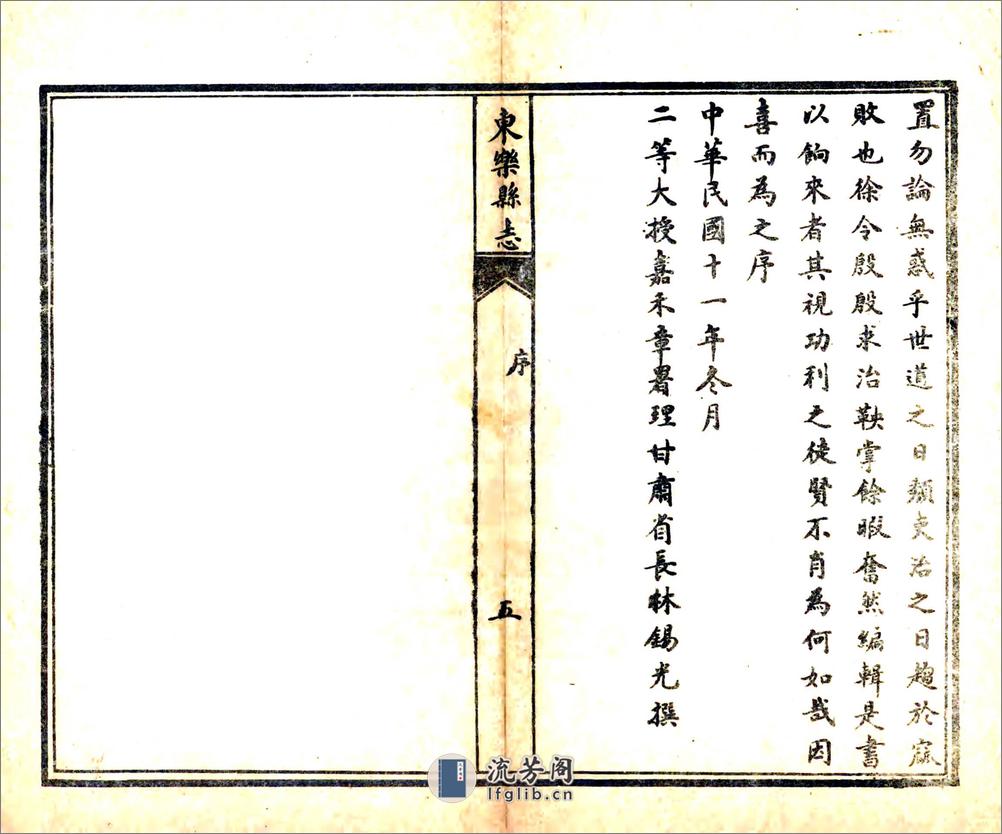 置勿論無惑乎世道之日頹吏治之日趨於寙
敗也徐令殷殷求治鞅掌餘暇奮然編輯是書
以餉來者其視功利之徒賢不肖為何如哉因
喜而為之序
中華民國十一年冬月
二等大授嘉禾章署理甘肅省長林錫光撰
東樂縣志
序
五
流芳阁
lfglib.cn